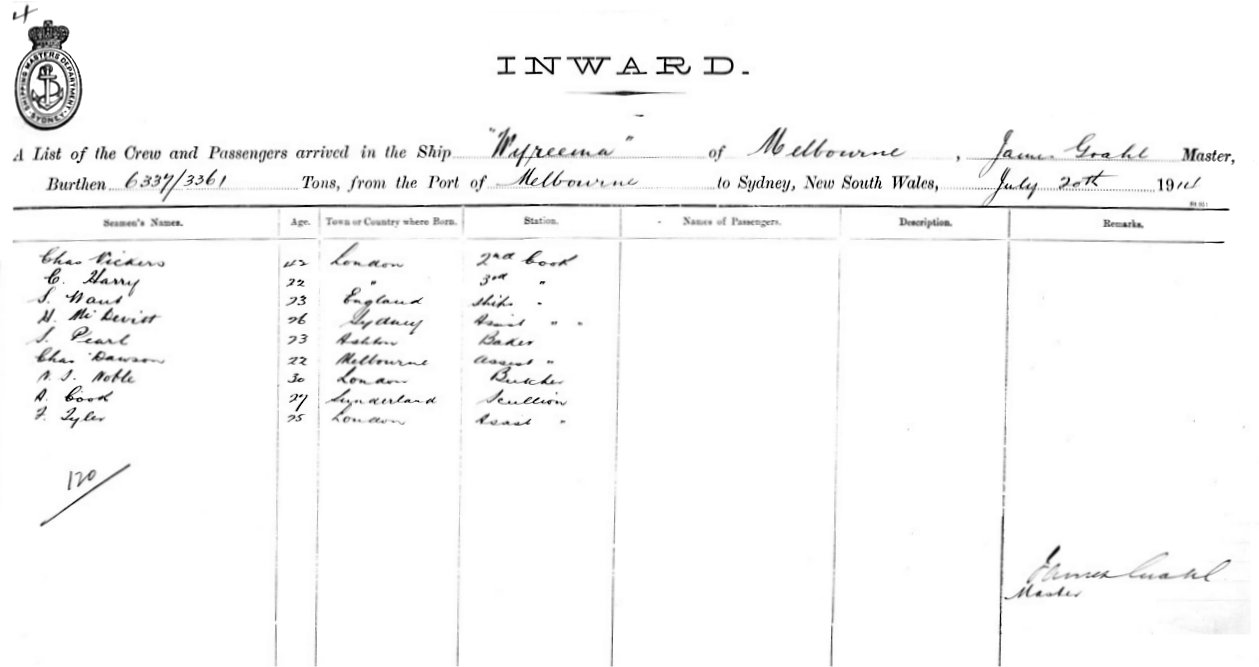 4
SHIPPING MASTERS DEPARTMENT SYDNEY
INWARD.
A List of the Crew and Passengers arrived in the Ship "Wyreema" of Melbourne, James Grahl Master,
Burthen 6337/3361 Tons, from the Port of Melbourne to Sydney, New South Wales, July 20th 191
Seamen's Names. Age. Town or Country where Born. Station. Names of Passengers. Description. Remarks.
Chas Vickers 42 London 2nd Cook
C. Harry 22 " 3rd "
S. 23 England Ships "
H. McDevitt 26 Sydney Assist " "
S. Pearl 23 Ashton Baker
Chas Dawson 22 Melbourne Assist "
Noble 30 London Butcher
A. Cook 27 Sunderland Scullion
F. Tyler 25 London Assist "
120
James Grahl
Master